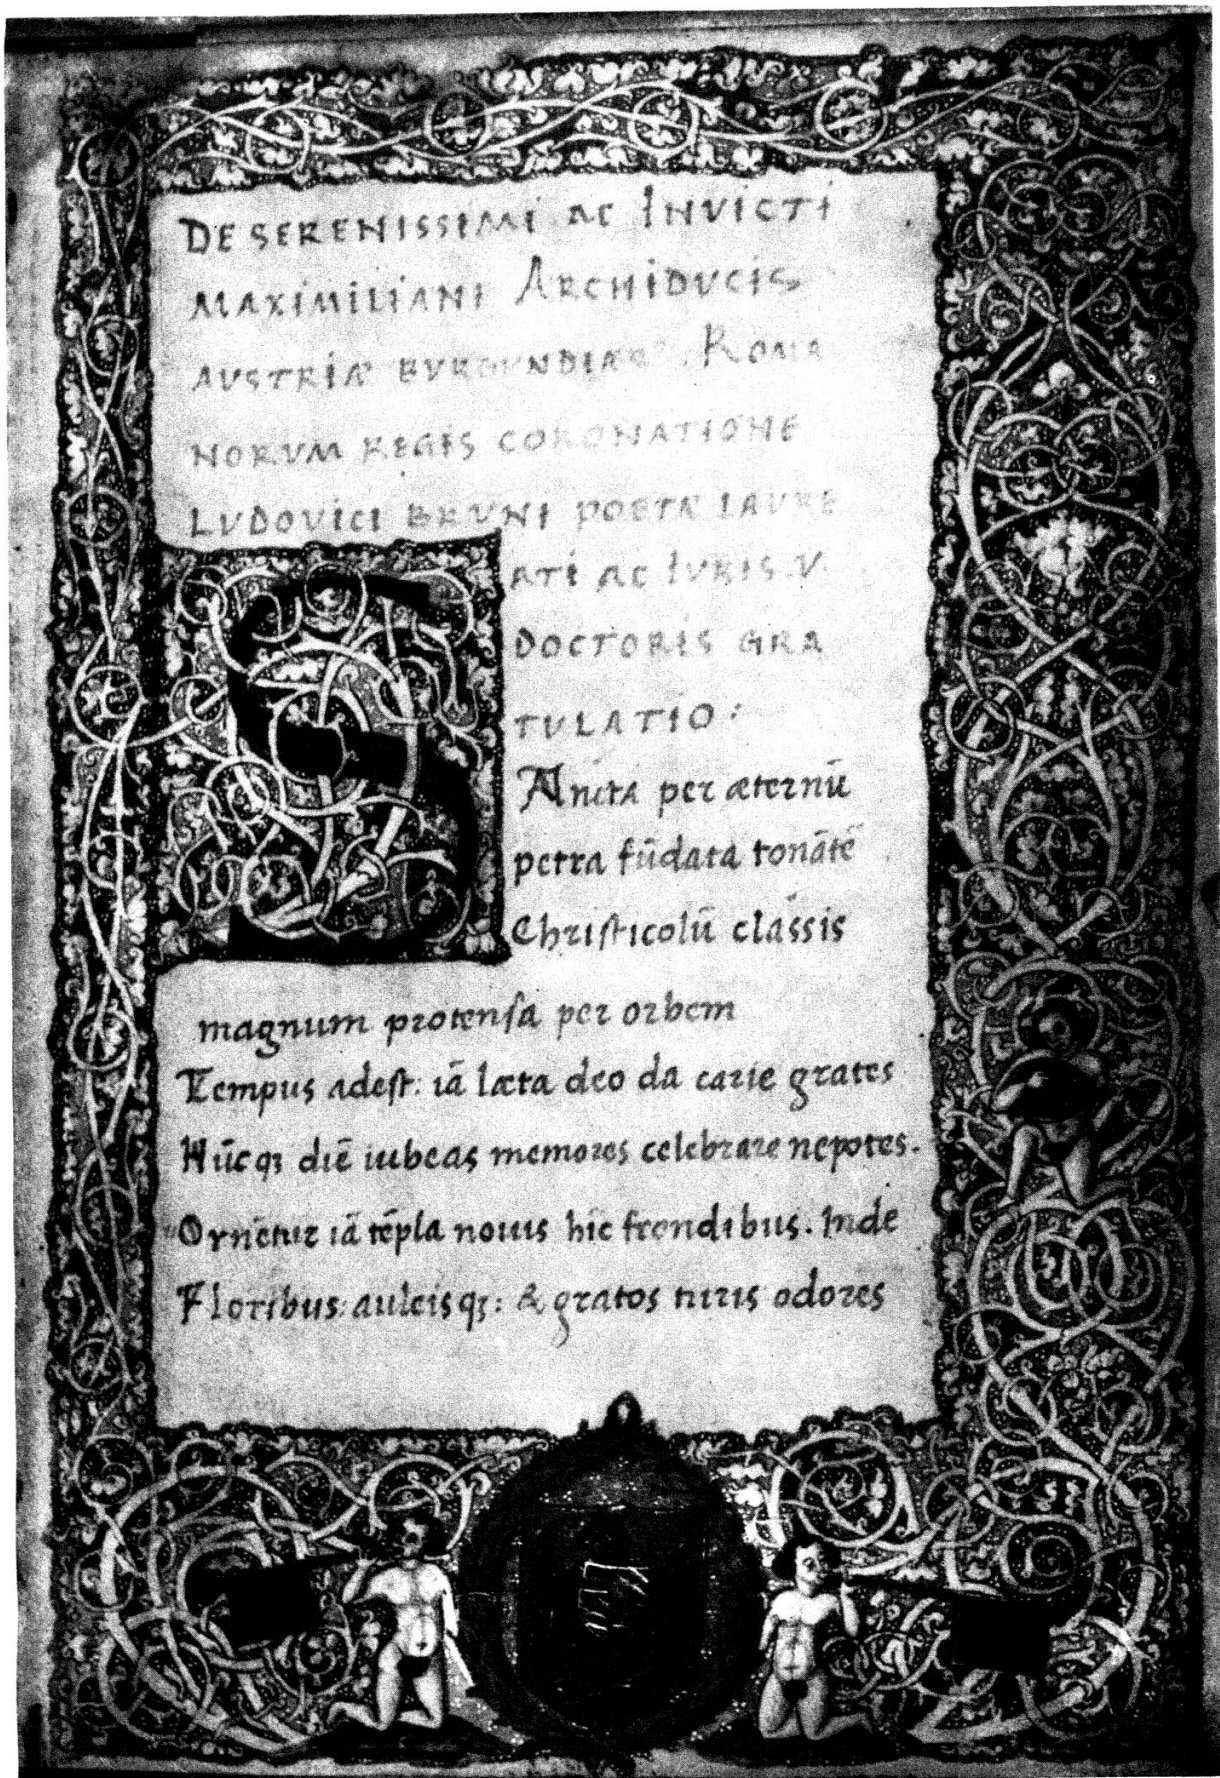 DE SERENISSIMI AC INVICTI
MAXIMILIANI ARCHIDVCIS
AVSTRIÆ BVRGVNDIÆQ. ROMA
NORVM REGIS CORONATIONE
LVDOVICI BRVNI POETÆ LAVRE
ATI AC IVRIS.V.
DOCTORIS GRA
TVLATIO:
S Ancta per æternū
petra fūdata tonātē
Christicolū classis
magnum protensa per orbem
Tempus adest: iā læta deo da carie grates
Hūcqꝫ diē iubeas memores celebrare nepotes.
Ornētur iā tēpla nouis hīc frondibus. Inde
Floribus: auleisqꝫ: & gratos turis odores